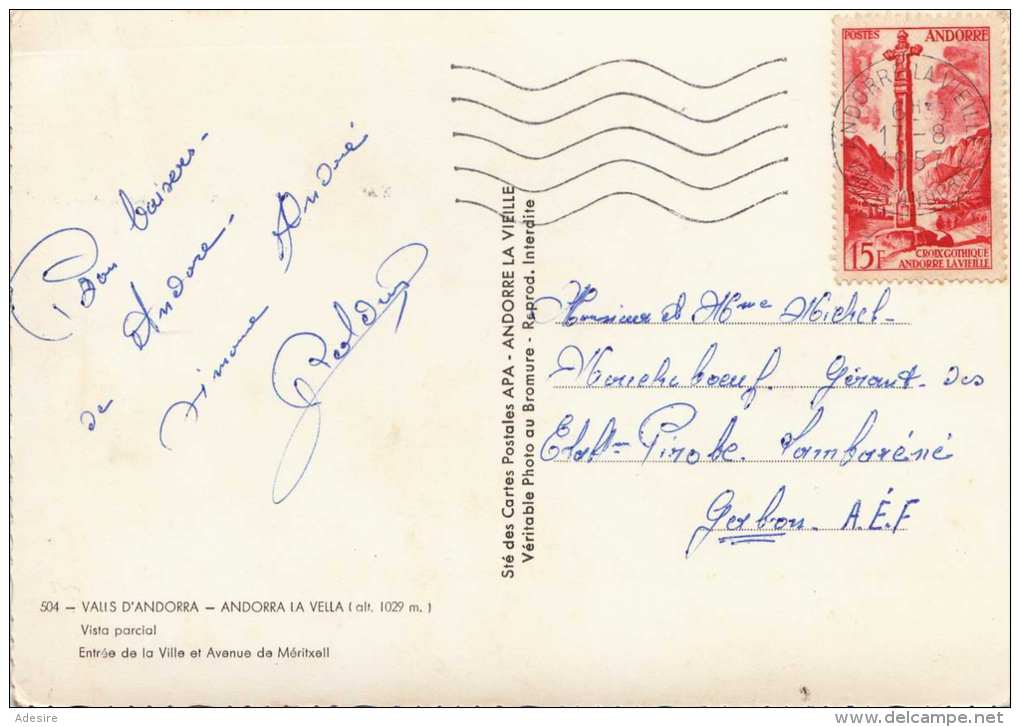 Bon baisers-
de Andore-
Simone André
POSTES ANDORRE
ANDORRE LA VIEILLE
17-8
15F
CROIX GOTHIQUE
ANDORRE LA VIEILLE
Sté des Cartes Postales APA - ANDORRE LA VIEILLE
Véritable Photo au Bromure - Reprod. Interdite
Monsieur et Mme Michel-
Moucheboeuf. Gérant-des
Etabts- Pirobe. Lambaréné
Gabon. A.É.F
504 — VALLS D'ANDORRA — ANDORRA LA VELLA (alt. 1029 m.)
Vista parcial
Entrée de la Ville et Avenue de Méritxell
Adesire
delcampe.net